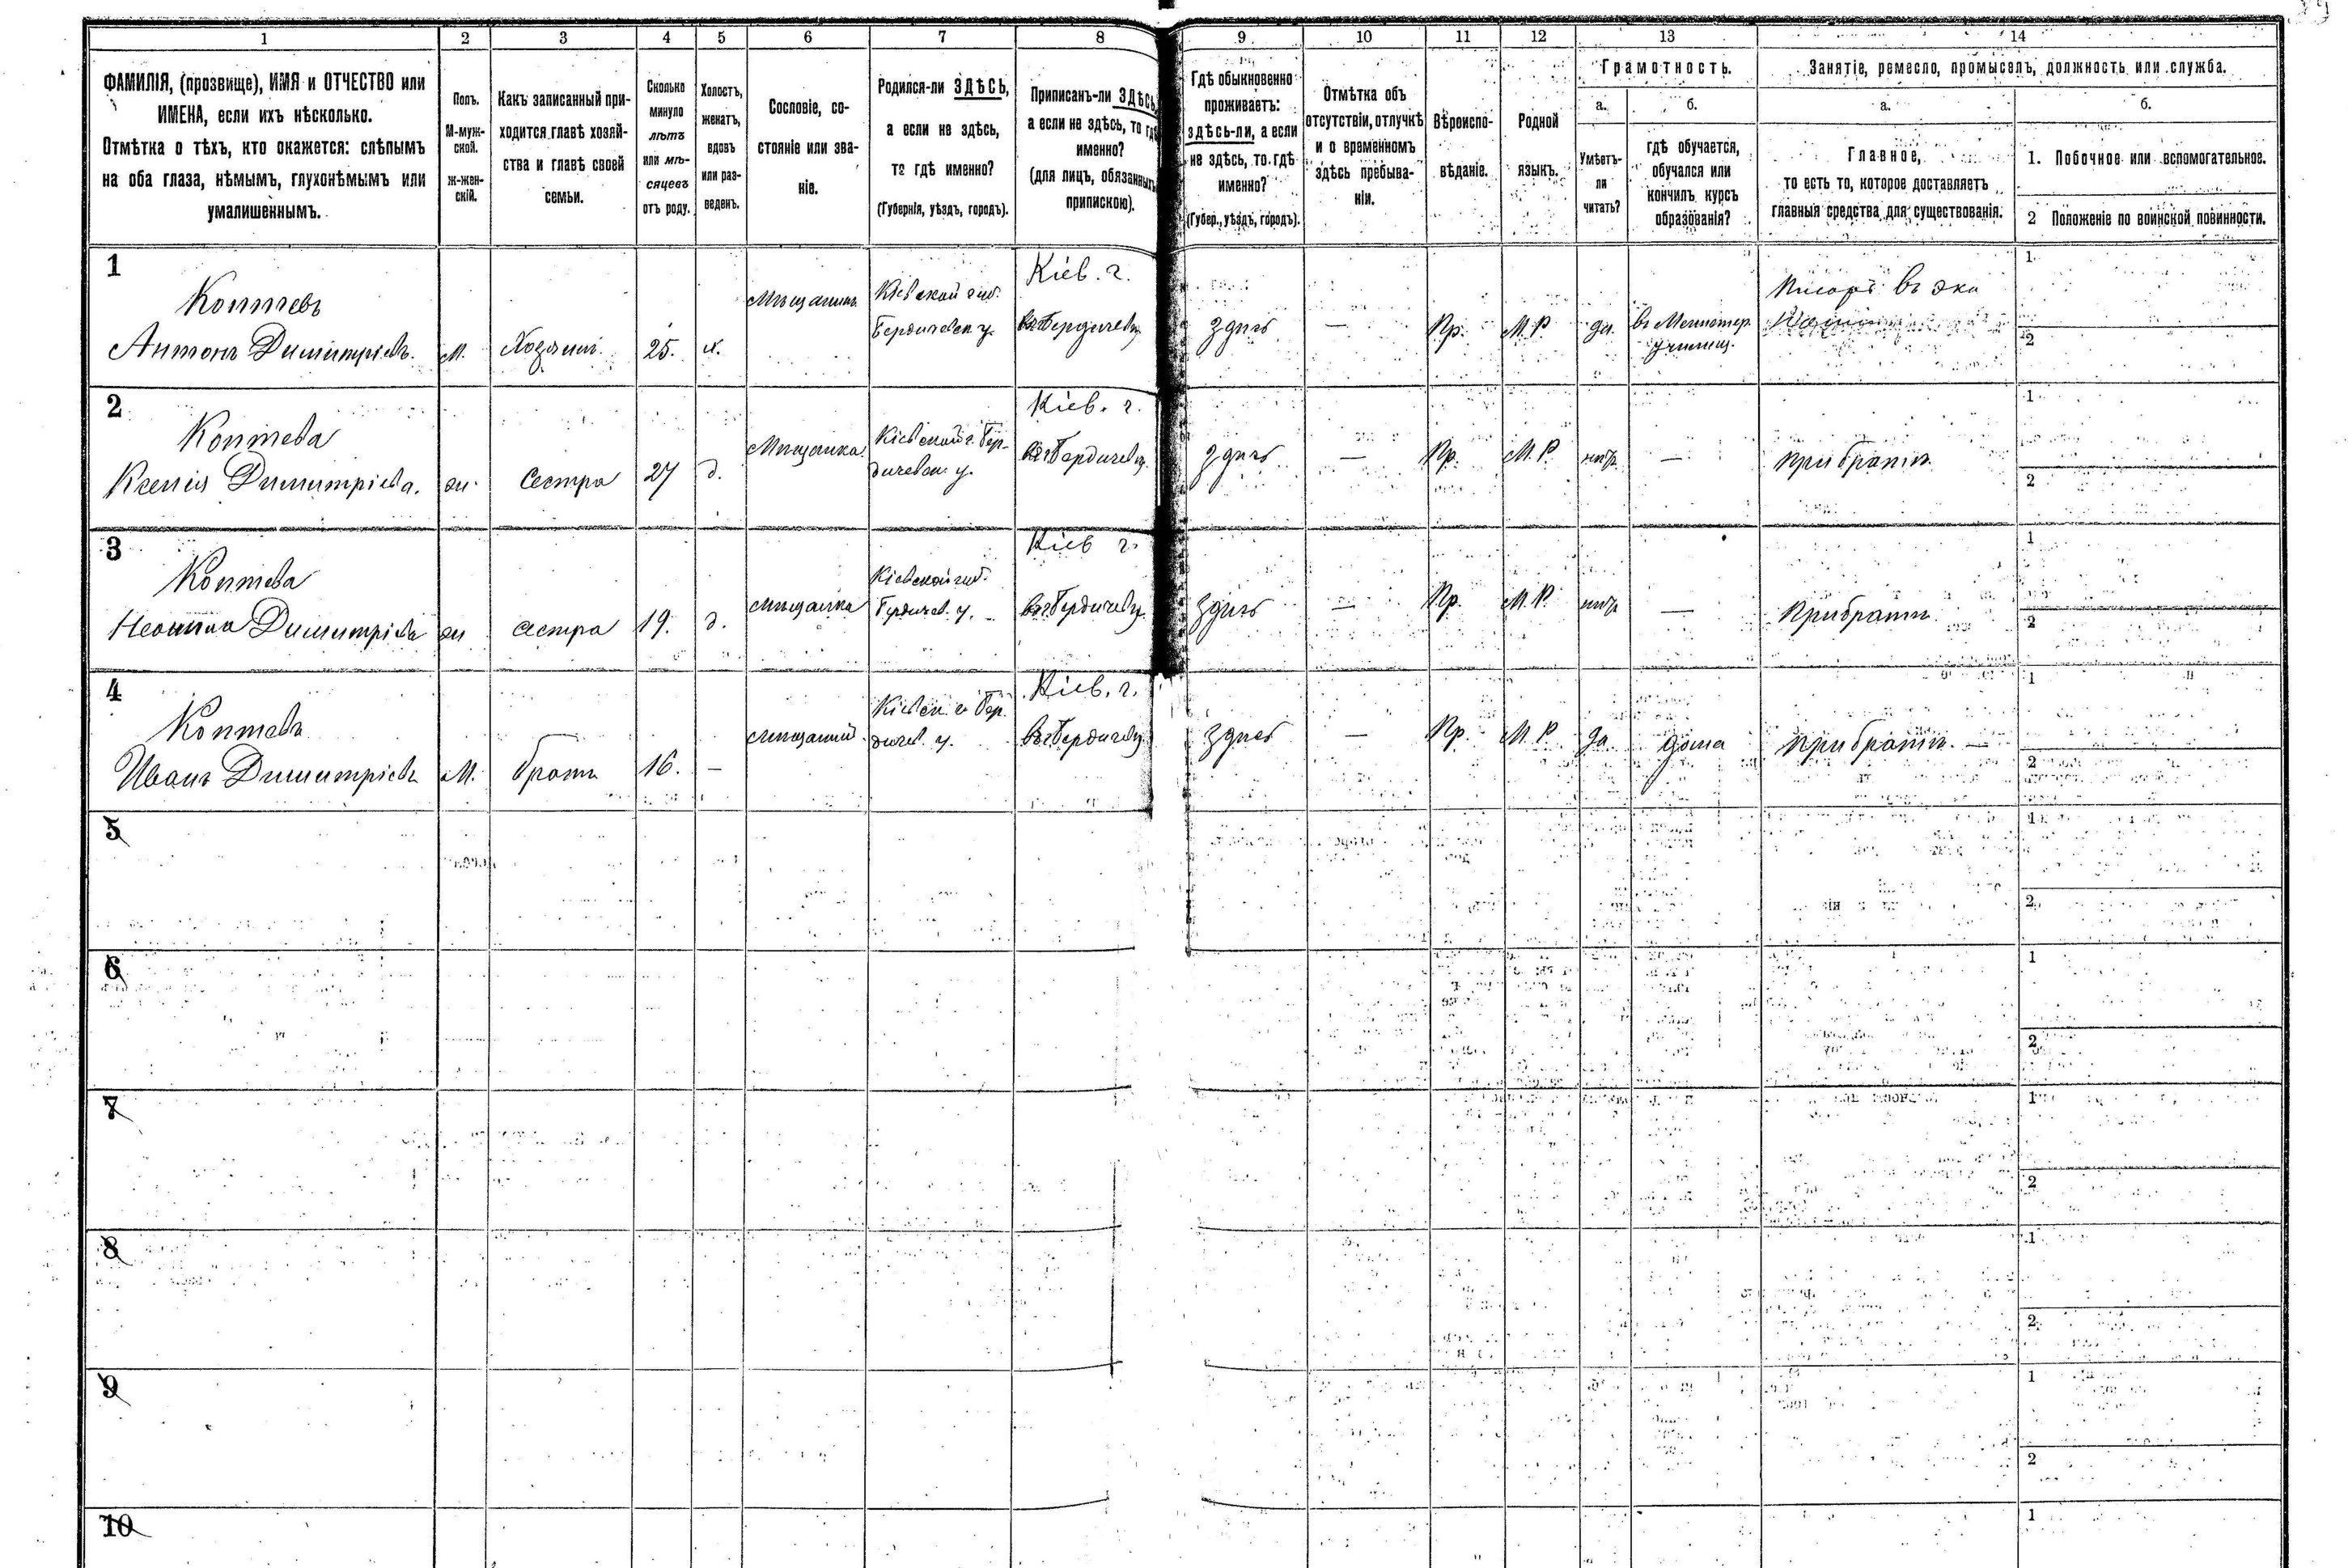 1 2 3 4 5 6 7 8 9 10 11 12 13 14
ФАМИЛІЯ, (прозвище), ИМЯ и ОТЧЕСТВО или
ИМЕНА, если ихъ нѣсколько.
Отмѣтка о тѣхъ, кто окажется: слѣпымъ
на оба глаза, нѣмымъ, глухонѣмымъ или
умалишеннымъ.
Полъ.
М-муж-
ской.
Ж-жен-
скій.
Какъ записанный при-
ходится главѣ хозяй-
ства и главѣ своей
семьи.
Сколько
минуло
лѣтъ
или мѣ-
сяцевъ
отъ роду.
Холостъ,
женатъ,
вдовъ
или раз-
веденъ.
Сословіе, со-
стояніе или зва-
ніе.
Родился-ли ЗДѢСЬ,
а если не здѣсь,
то гдѣ именно?
(Губернія, уѣздъ, городъ).
Приписанъ-ли ЗДѢСЬ,
а если не здѣсь, то гдѣ
именно?
(для лицъ, обязанныхъ
припискою).
Гдѣ обыкновенно
проживаетъ:
здѣсь-ли, а если
не здѣсь, то гдѣ
именно?
(Губер., уѣздъ, городъ).
Отмѣтка объ
отсутствіи, отлучкѣ
и о временномъ
здѣсь пребыва-
ніи.
Вѣроиспо-
вѣданіе.
Родной
языкъ.
Грамотность.
а.
Умѣетъ-
ли
читать?
б.
гдѣ обучается,
обучался или
кончилъ курсъ
образованія?
Занятіе, ремесло, промыселъ, должность или служба.
а.
Главное,
то есть то, которое доставляетъ
главныя средства для существованія.
б.
1. Побочное или вспомогательное.
2 Положеніе по воинской повинности.
1
Коптевъ
Антонъ Димитріевъ.
м.
Хозяинъ
25.
х.
Мѣщанинъ
Кіевской губ.
Бердичевск у.
Кіев. г.
въ г Бердичевѣ
здѣсь
—
Пр.
М. Р
да.
въ
Училищ.
Писарь въ эко
1
2
2
Коптева
Ксенія Димитріева.
ж.
Сестра
27
д.
Мѣщанка
Кіевской г. Бер-
дичевск у.
Кіев. г.
въ г Бердичевѣ
здѣсь
—
Пр.
М. Р.
нѣтъ
—
При братѣ
1
2
3
Коптева
Димитріева
ж
Сестра
19.
д.
мѣщанка
Кіевской губ.
Бердичев. у.
Кіев г.
въ г Бердичевѣ
здѣсь
—
Пр.
М. Р.
нѣтъ
—
При братѣ
1
2
4
Коптевъ
Иванъ Димитріевъ
М.
братъ
16.
—
Кіевск. г. Бер
дичев. у.
Кіев. г.
въ г Бердичевѣ
здѣсь
—
Пр.
М. Р
да
дома
при братѣ. —
1
2
5
1
2
6
1
2
7
1
2
8
1
2
9
1
2
10
1